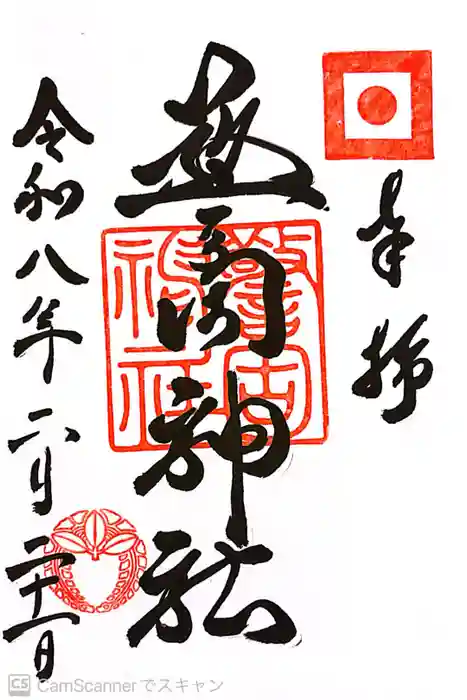 奉拝
警固神社
警固
神社
令和八年二月二十一日
CS CamScannerでスキャン